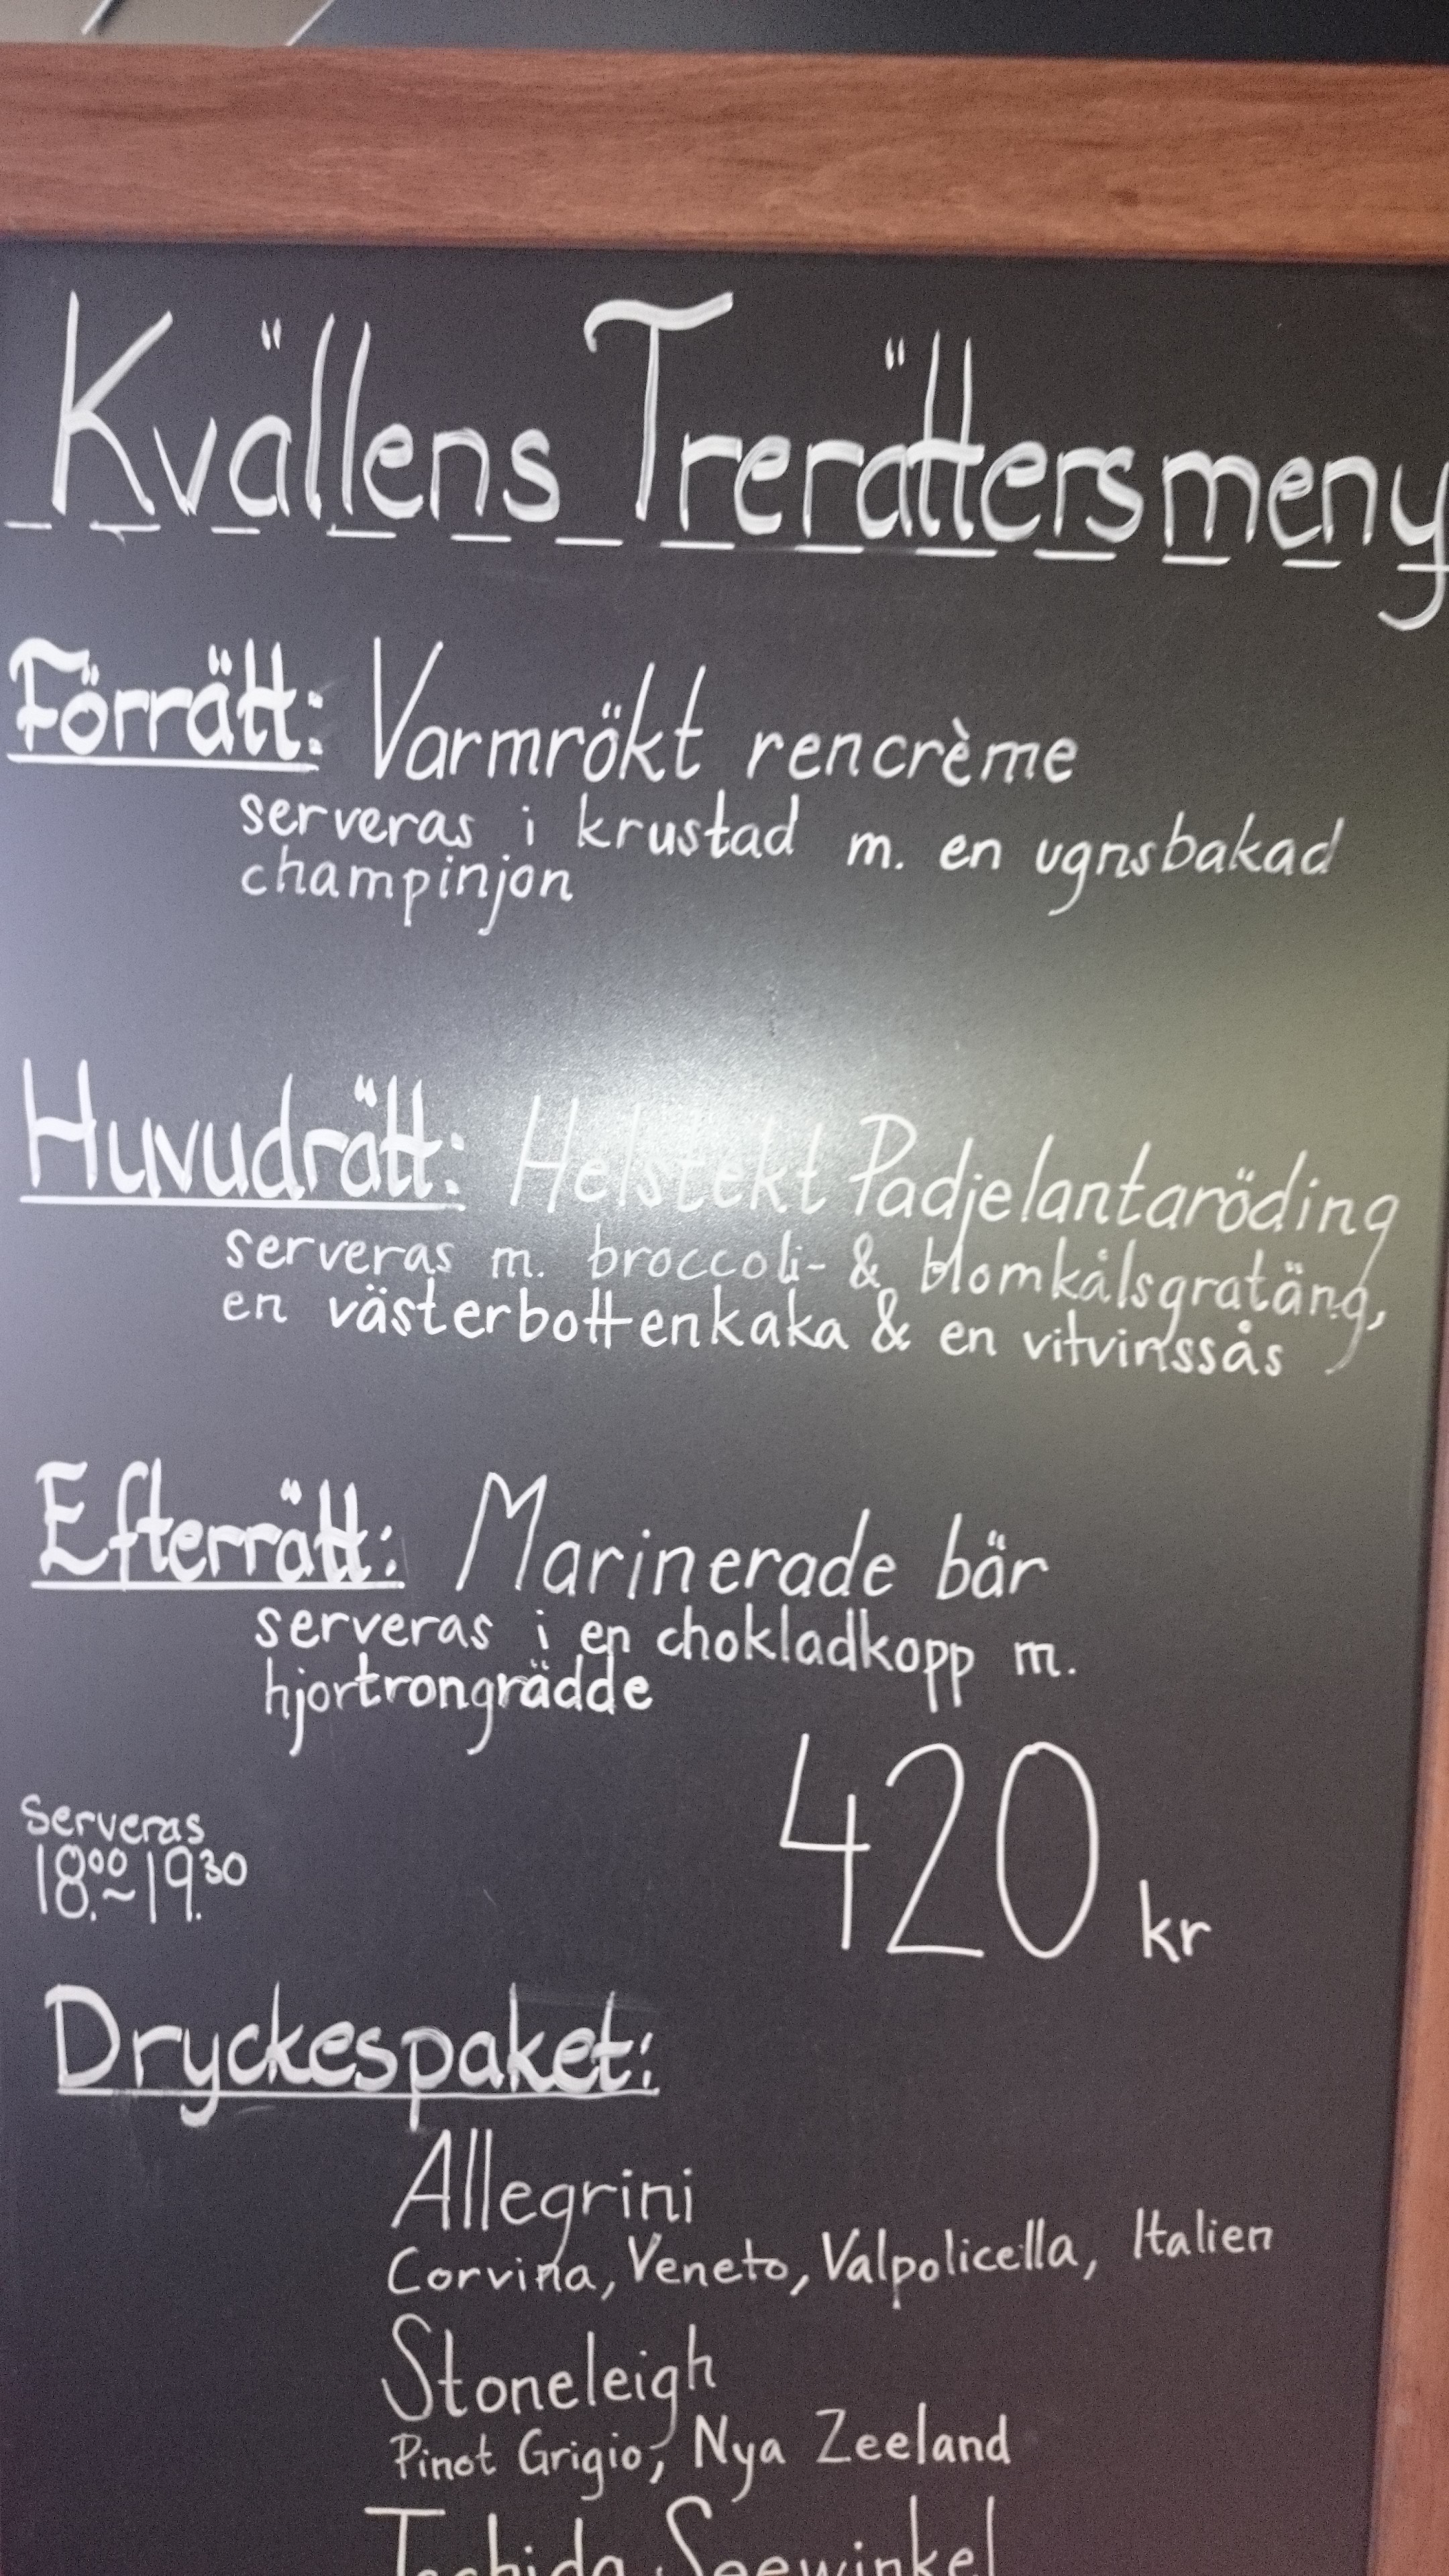 Kvällens Trerättersmeny
Förrätt: Varmrökt rencrème
serveras i krustad m. en ugnsbakad
champinjon
Huvudrätt: Helstekt Padjelantaröding
serveras m. broccoli- & blomkålsgratäng,
en västerbottenkaka & en vitvinssås
Efterrätt: Marinerade bär
serveras i en chokladkopp m.
hjortrongrädde
Serveras
18.00~19.30
420 kr
Dryckespaket:
Allegrini
Corvina, Veneto, Valpolicella, Italien
Stoneleigh
Pinot Grigio, Nya Zeeland
Seewinkel